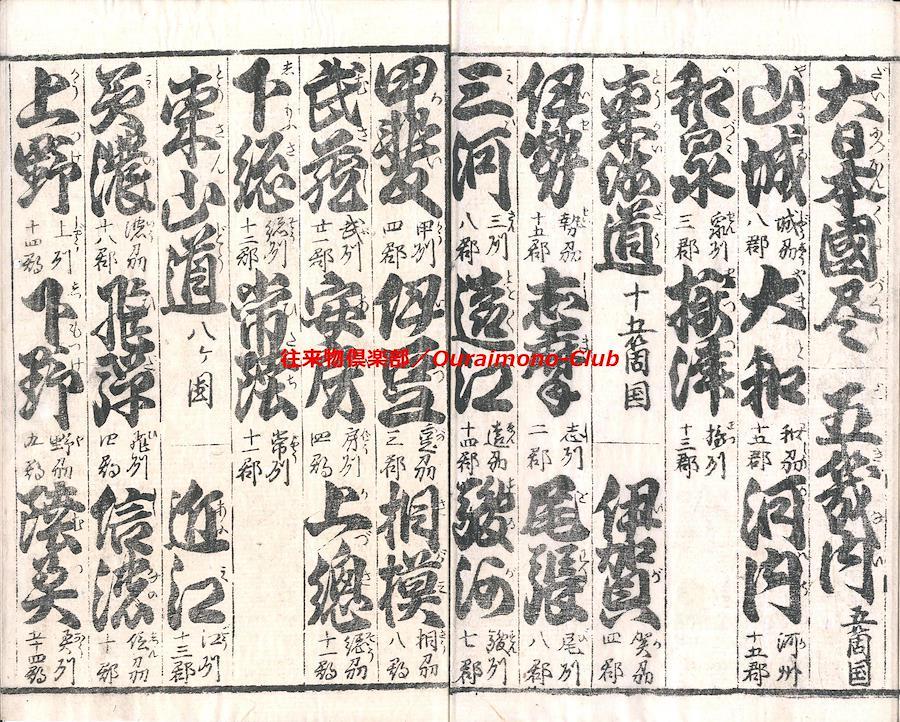 大日本國尽 五畿内 五箇国
山城 城州 八郡 大和 和州 十五郡 河内 河州 十五郡
和泉 泉州 三郡 摂津 摂州 十三郡
東海道 十五箇国 伊賀 賀州 四郡
伊勢 勢州 十五郡 志摩 志州 二郡 尾張 尾州 八郡
三河 三州 八郡 遠江 遠州 十四郡 駿河 駿州 七郡
甲斐 甲州 四郡 伊豆 豆州 三郡 相模 相州 八郡
武蔵 武州 廿一郡 安房 房州 四郡 上総 総州 十一郡
下総 総州 十二郡 常陸 常州 十一郡
東山道 八ヶ国 近江 江州 十三郡
美濃 濃州 十八郡 飛騨 飛州 四郡 信濃 信州 十郡
上野 上州 十四郡 下野 野州 九郡 陸奥 奥州 五十四郡
往来物倶楽部/Ouraimono-Club